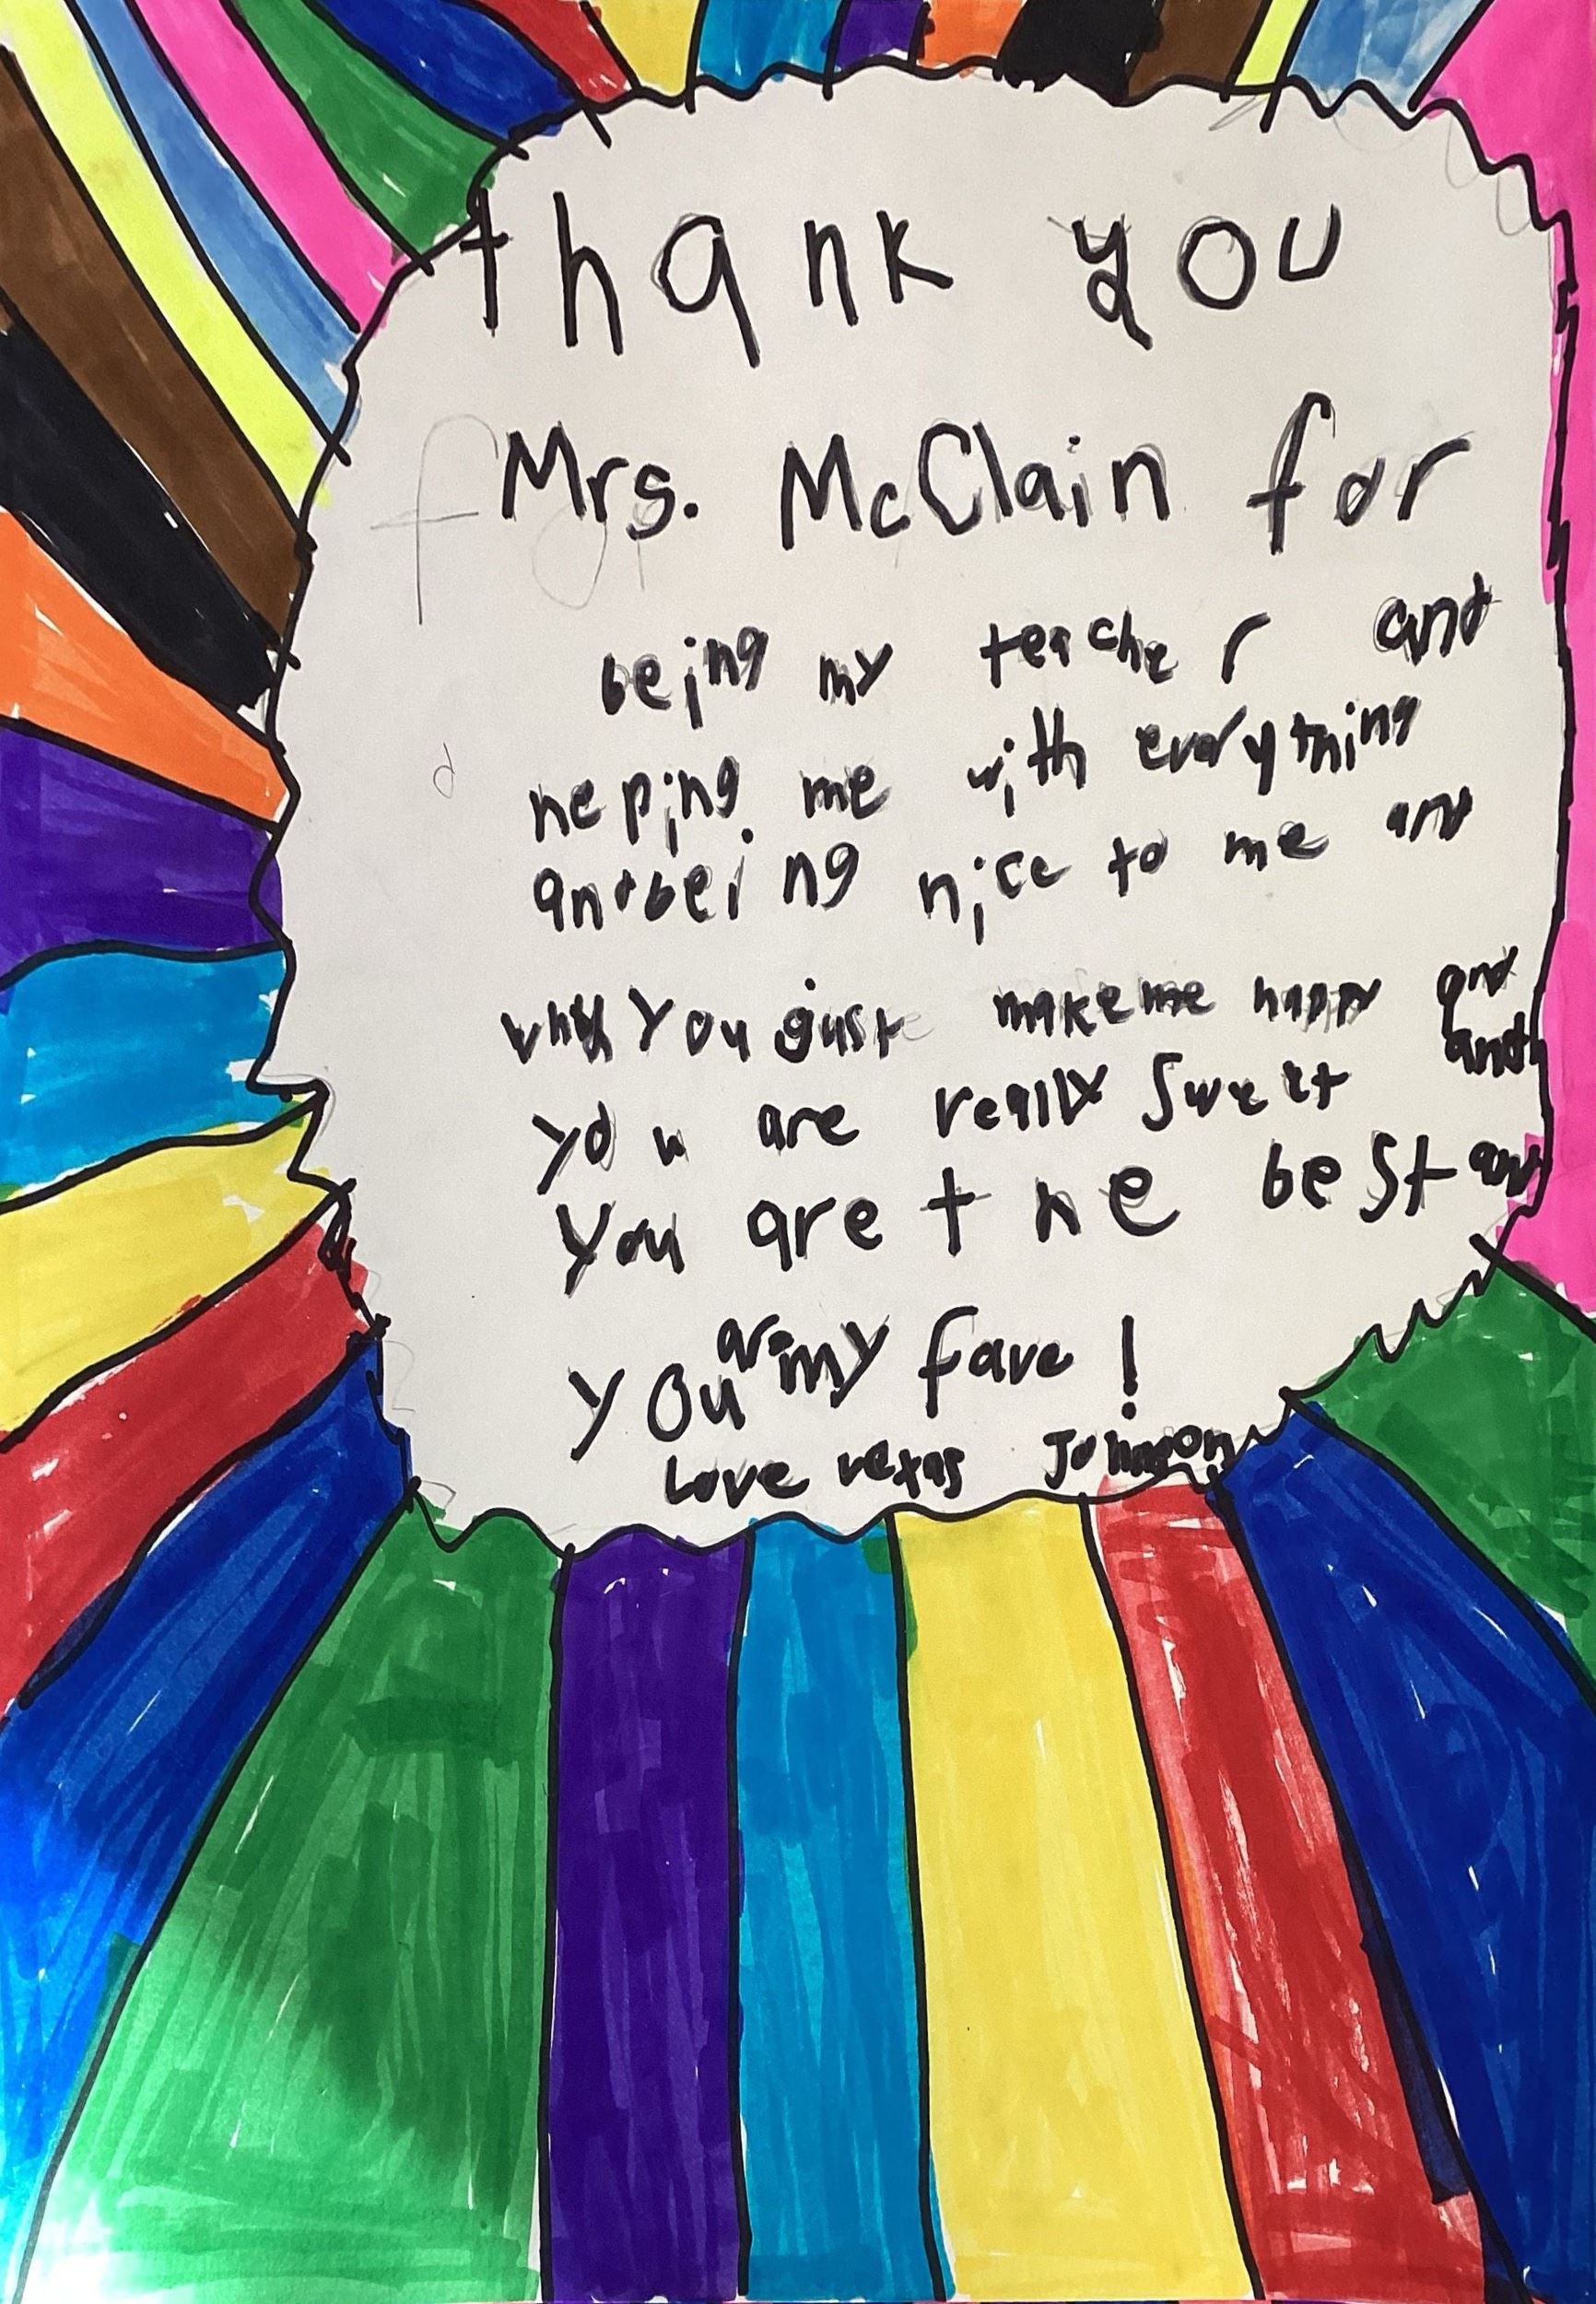 thank you
Mrs. McClain for
being my teacher and
heping me with everything
and being nice to me and
you gust make me happy and
you are really sweet and
you are the best an
you are my fave!
Love vexas Johnson